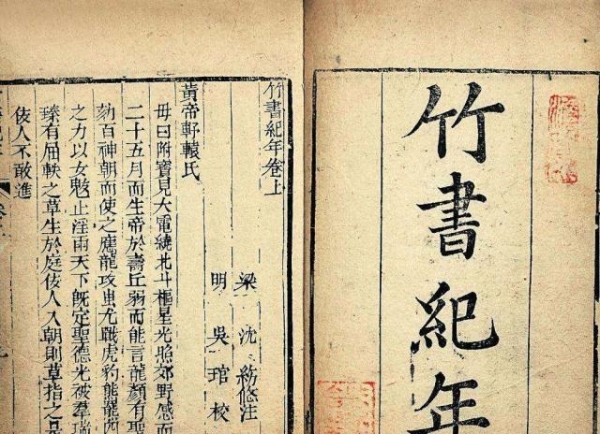 竹書紀年
竹書紀年卷上
梁 沈約修注
明 吳琯校
黃帝軒轅氏
母曰附寶見大電繞北斗樞星光照郊野感而
二十五月而生帝於壽丘弱而能言龍顏有聖
劾百神朝而使之應龍攻蚩尤戰虎豹熊羆四
之力以女魃止淫雨天下既定聖德光被羣瑞
臻有屈軼之草生於庭佞人入朝則草指之是
佞人不敢進